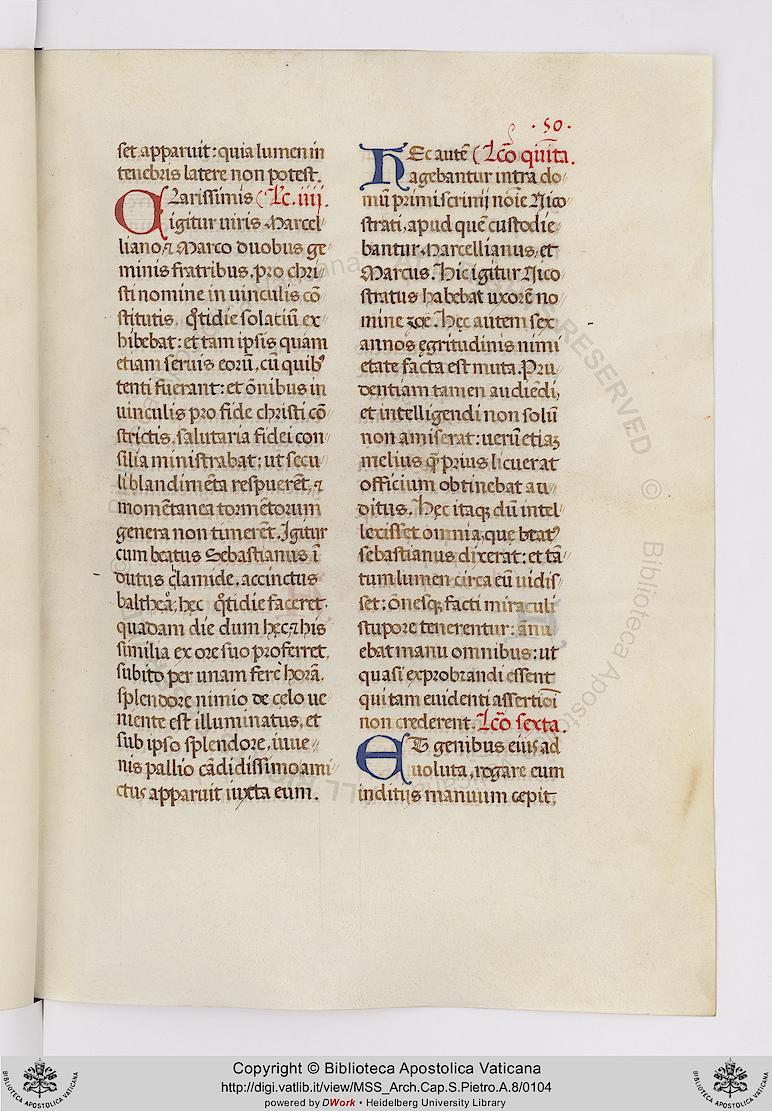 ·50·
set apparuit: quia lumen in
tenebris latere non potest.
Clarissimis Lc. iiii.
igitur uiris Marcel-
liano, ⁊ Marco duobus ge
minis fratribus, pro chri
sti nomine in uinculis cō
stitutis q̊tidie solatiū ex
hibebat: et tam ipsis quam
etiam seruis eorū, cū quibꝰ
tenti fuerant: et ōnibus in
uinculis pro fide christi cō
strictis, salutaria fidei con
silia ministrabat: ut secu
li blandimēta respuerēt, ⁊
momētanea tormētorum
genera non timerēt. Igitur
cum beatus Sebastianus ī
dutus clamide, accinctus
baltheā, hęc q̊tidie faceret.
quadam die dum hęc, ⁊ his
similia ex ore suo proferret,
subito per unam fere horā.
splendore nimio de celo ue
niente est illuminatus, et
sub ipso splendore, iuue
nis pallio cādidissimo ami
ctus apparuit iuxta eum.
HEc autē Lc̄o quīta.
agebantur intra do
mū primiscrinij noīe Nico
strati, apud quē custodie
bantur Marcellianus, et
Marcus. Hic igitur Nico
stratus habebat uxorē no
mine zoe. Hęc autem sex
annos ęgritudinis nimi
etate facta est muta. Pru
dentiam tamen audiēdi,
et intelligendi non solū
non amiserat: uerū etiaꝫ
melius q̄ prius licuerat
officium obtinebat au
ditus. Hęc itaqꝫ dū intel
lexisset omnia, que btatꝰ
sebastianus dixerat: et tā
tum lumen circa eū uidis
set: ōnesqꝫ facti miraculi
stupore tenerentur: ānu
ebat manu omnibus: ut
quasi exprobrandi essent
qui tam euidenti assertiōi
non crederent. Lc̄o sexta.
ET genibus eius ad
uoluta, rogare eum
inditijs manuum cepit,
Copyright © Biblioteca Apostolica Vaticana
http://digi.vatlib.it/view/MSS_Arch.Cap.S.Pietro.A.8/0104
powered by DWork • Heidelberg University Library